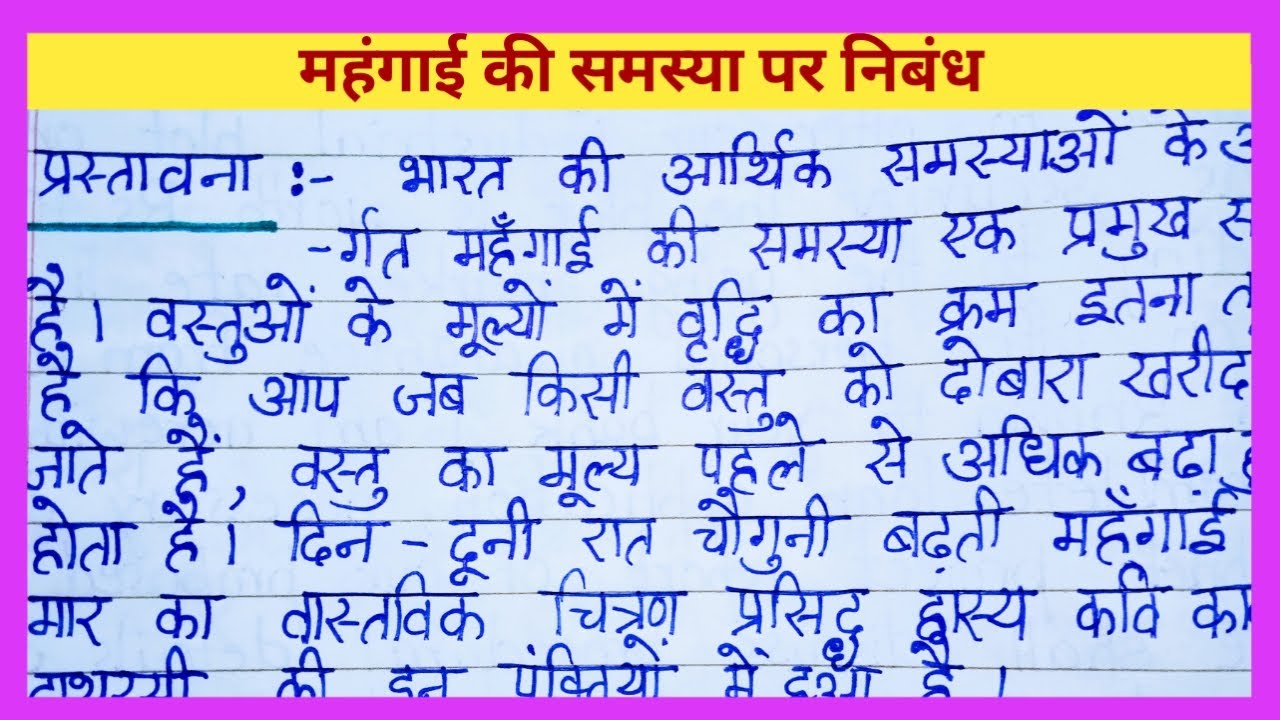 महंगाई की समस्या पर निबंध
प्रस्तावना :- भारत की आर्थिक समस्याओं के
-र्गत महँगाई की समस्या एक प्रमुख
है। वस्तुओं के मूल्यों में वृद्धि का क्रम इतना
है कि आप जब किसी वस्तु को दोबारा खरीद
जाते हैं, वस्तु का मूल्य पहले से अधिक बढ़ा
होता है। दिन - दूनी रात चौगुनी बढ़ती महँगाई
मार का वास्तविक चित्रण प्रसिद्ध हास्य कवि का
की इन पंक्तियों में हुआ है ।